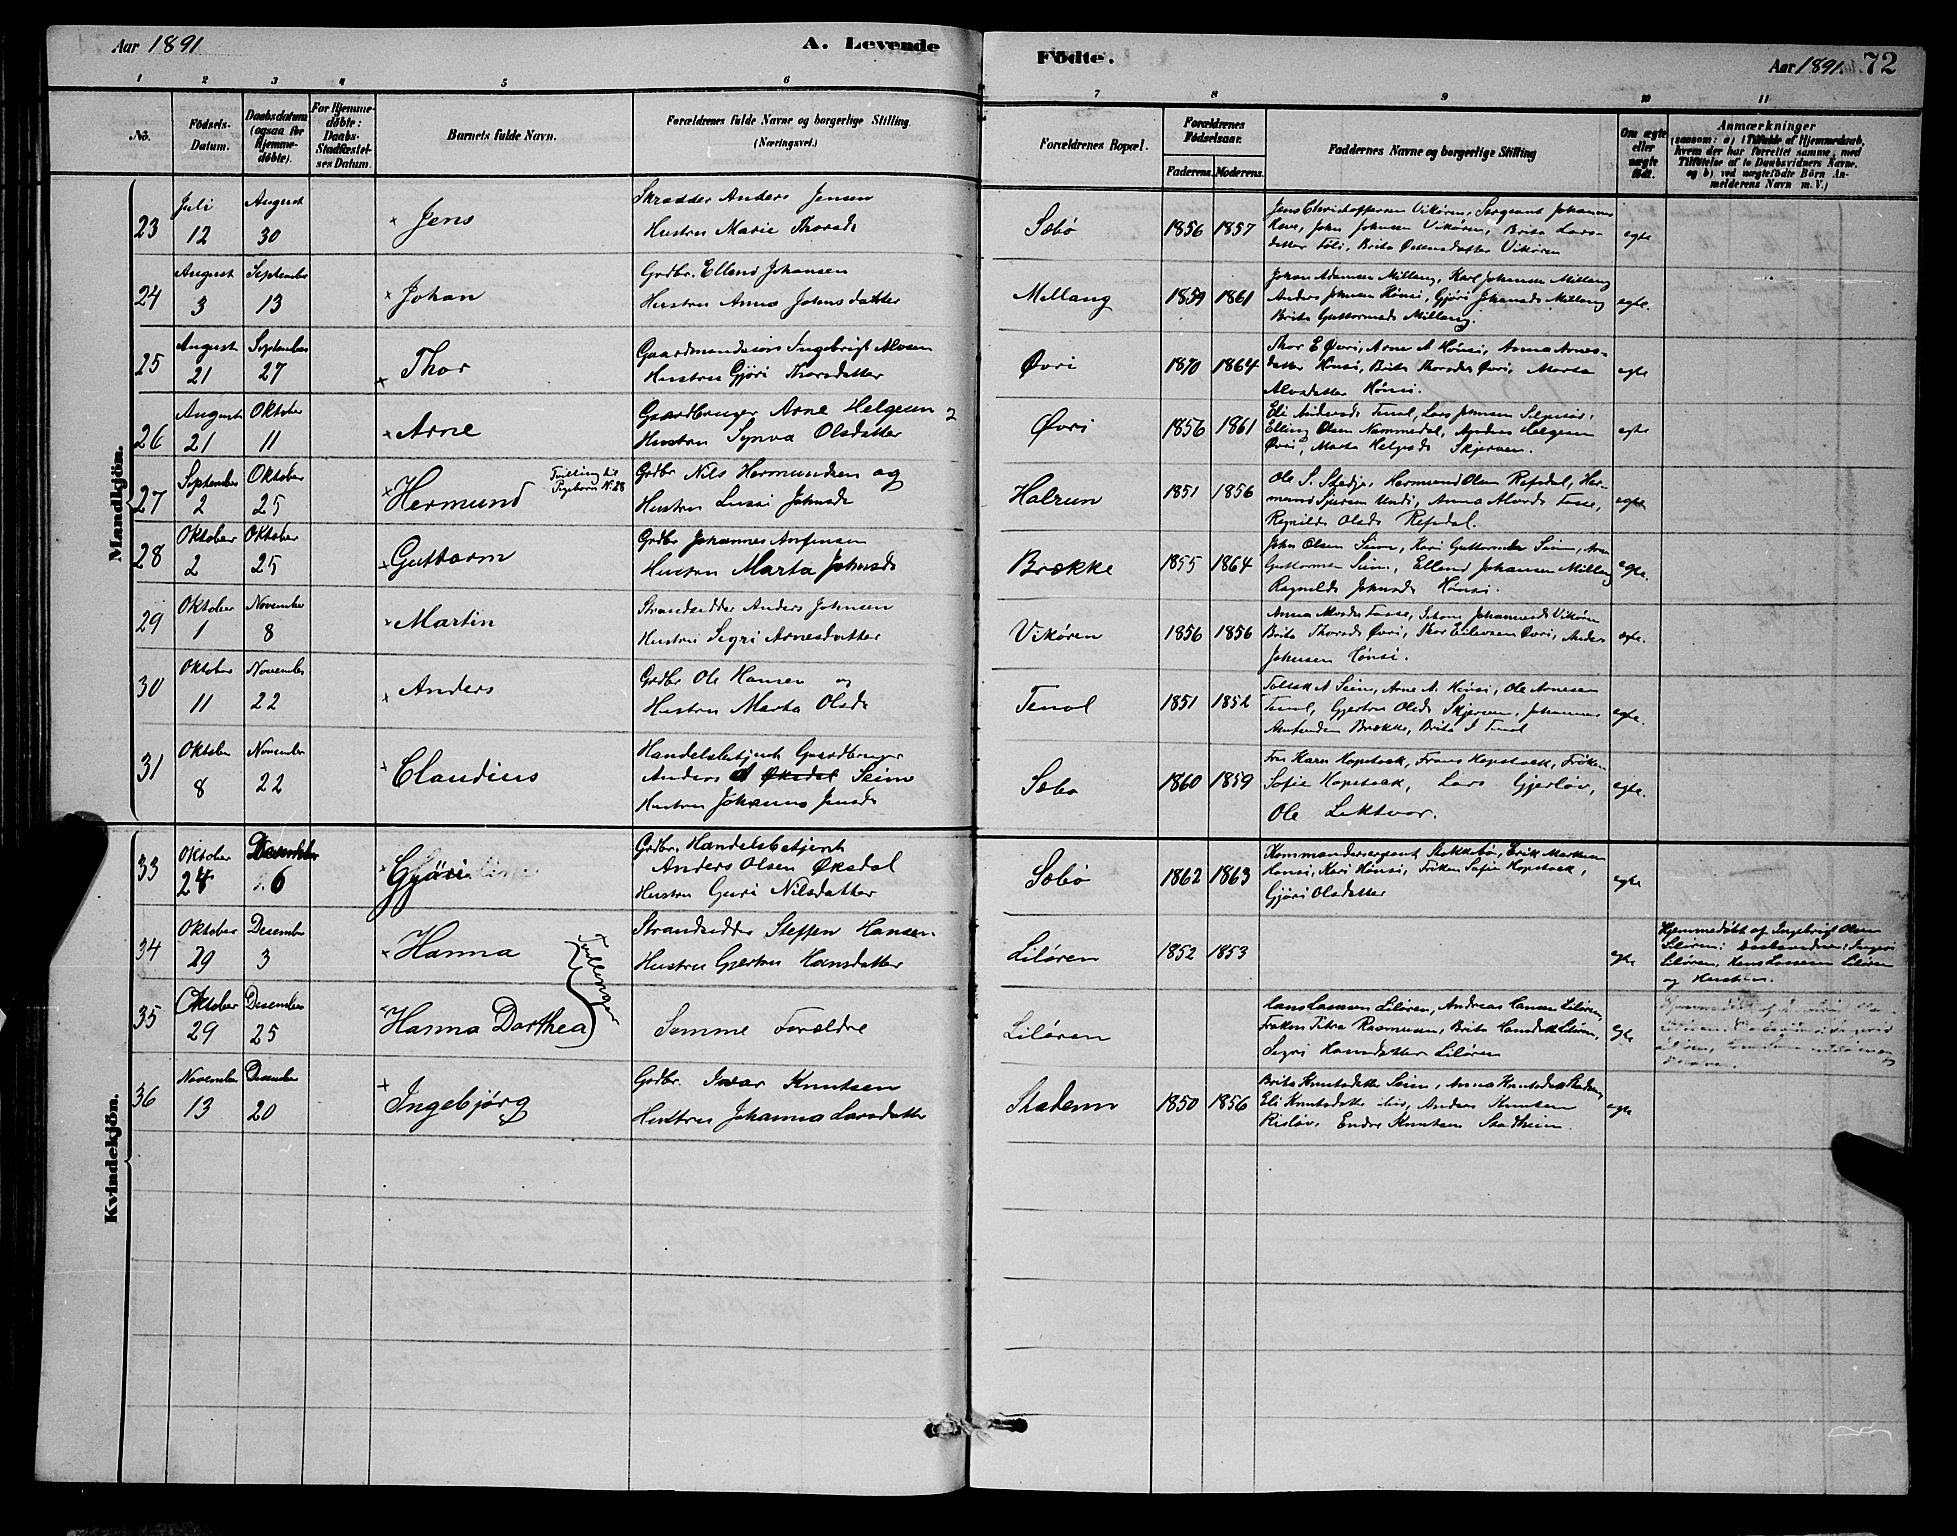 Aar 1891
A. Levende
Födte.
Aar 1891. 72
1 2 3 4 5 6 7 8 9 10 11
No.
Födsels-
Datum.
Daabsdatum
(ogsaa for
Hjemme-
döbte).
For Hjemme-
döbte:
Daabs-
Stadfæstel-
ses Datum.
Barnets fulde Navn.
Forældrenes fulde Navne og borgerlige Stilling
(Næringsvei.)
Forældrenes Bopæl.
Forældrenes
Födselsaar.
Faderens. Moderens.
Faddernes Navne og borgerlige Stilling
Om ægte
eller
uægte
födt.
Anmærkninger
(saasom: a) i Tilfælde af Hjemmedaab,
hvem der har forrettet samme, med
Tilföielse af to Daabsvidners Navne,
og b) ved uægtefödte Börn An-
melderens Navn m. V.)
Mandkjön.
23
Juli
12
August
30
Jens
Skrædder Anders Jensen
Hustru Marie Thorsd.
Sæbö
1856 1857
Jens Christoffersen Vikören, Sergeant Johannes
Hove, John Johnsen Vikören, Brita Lars-
datter Föli, Brita Østensdatter Vikören
egte
24
August
3
September
13
Johan
Grdbr. Ellend Johansen
Hustru Anna Johnsdatter
Millang
1859 1861
Johan Adamsen Millang, Karl Johansen Millang
Anders Johnsen Hönsi, Gjöri Johansd. Millang
Brita Guttormsd. Millang.
egte.
25
August
21
September
27
Thor
Gaardmandssön Ingebrigt Alvsen
Hustru Gjöri Thorsdatter
Øvri
1870 1864
Thor E Øvri, Arne A Hönsi, Anna Arnes-
datter Hönsi, Brita Thorsd. Øvri, Marta
Alvsdatter Hönsi.
egte
26
August
21
Oktober
11
Arne
Gaardbruger Arne Helgesen
Hustru Synva Olsdatter
Øvri
1856 1861
Eli Andersd. Tenol, Lars Johnsen
Elling Olsen Nummedal, Anders Helgesen
Øvri, Marta Helgesd. Skjerven.
egte
27
September
2
Oktober
25
Hermund
Tvilling til
Ingeborg N. 28
Grdbr. Nils Hermundsen og
Hustru Lussi Johnsd.
Halrun
1851 1856
Ole S. Stedje, Hermund Olsen Refsdal, Her-
mund Sjursen Undi, Anna Alvsd. Tosse,
Ragnilda Olsd. Refsdal.
egte
28
Oktober
2
Oktober
25
Guttorm
Grdbr Johannes Amfinsen
Hustru Marta Johnsd.
Brække
1855 1864
John Olsen Seim, Kari Guttormsd. Seim, Arne
Guttormsen Seim, Ellend Johansen Millang
Ragnilda Johnsd. Hönsi.
egte.
29
Oktober
1
November
8
Martin
Strandsidder Anders Johnsen
Hustru Sigri Arnesdatter
Vikören
1856 1856
Anna Alvsd. Tosse, Johannesd. Vikören
Brita Thorsd. Øvri, Thor Eilevsen Øvri, Anders
Johnsen Hönsi.
egte.
30
Oktober
11
November
22
Anders
Grdbr Ole Hansen og
Hustru Marta Olsd.
Tenol
1851 1852
A Seim, Arne A. Hönsi, Ole Arnesen
Tenol, Gjertru Olsd. Skjerven, Johannes
Amfinsen Brække, Brita J Tenol
egte.
31
Oktober
8
November
22
Claudius
Handelsbetjent Gaardbruger
Anders A Øksdal Seim
Hustru Johanna Jensd.
Sæbö
1860 1859
Fru Karen Hopstock, Frans Hopstock, Fröken
Sofie Hopstock, Lars Gjerlöv,
Ole Lektvor.
egte.
Kvindekjön.
33
Oktober
24
Desember
6
Gjöri
Grdbr. Handelsbetjent
Anders Olsen Øksdal
Hustru Guri Nilsdatter
Sæbö
1862 1863
Kommandersergeant Stokkebö, Erik Markusen
Hönsi, Kari Hönsi, Fröken Sofie Hopstock,
Gjöri Olsdatter
egte
34
Oktober
29
Desember
3
Hanna
Tvillinger
Strandsidder Steffen Hansen
Hustru Gjertru Hansdatter
Lilören
1852 1853
egte
Hjemmedöbt af Ingebrigt Olsen
Lilören: Daabsvidner: Ingeri
Lilören, Hans Lassesen Lilören
og Hustru.
35
Oktober
29
Desember
25
Hanna Dorthea
Samme Forældre
Lilören
Hans Lassesen Lilören, Andreas Hansen Lilören,
Fröken Petra Rasmussen, Brita Hansdatter Lilören,
Sigri Hansdatter Lilören
egte
36
November
13
Desember
20
Ingebjörg
Grdbr. Ivar Knutsen
Hustru Johanna Larsdatter
Stadeim
1850 1856
Brita Knutsdatter Seim, Anna Knutsdatter Stadeim
Eli Knutsdatter ibid, Anders Knutsen
Rislöv, Endre Knutsen Stadheim.
egte